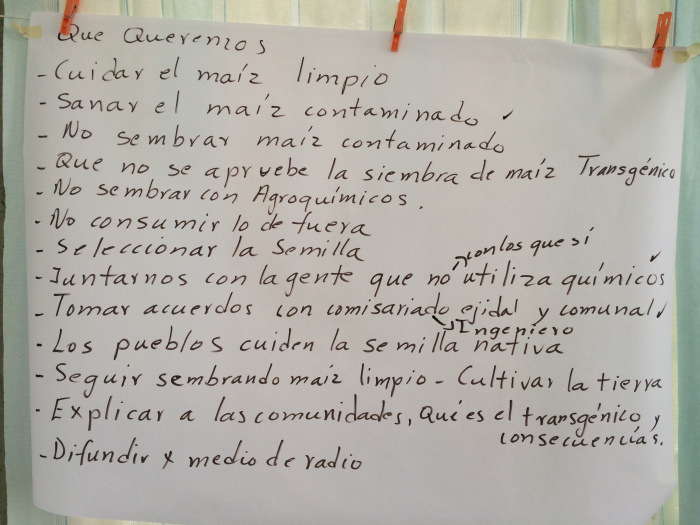 Que Queremos
- Cuidar el maíz limpio
- Sanar el maíz contaminado ✓
- No sembrar maíz contaminado
- Que no se apruebe la siembra de maíz Transgénico
- No sembrar con Agroquímicos.
- No consumir lo de fuera
- Seleccionar la Semilla
y con los que sí
- Juntarnos con la gente que no utiliza químicos ✓
- Tomar acuerdos con comisariado ejidal y comunal ✓
Ingeniero
- Los pueblos cuiden la semilla nativa
- Seguir sembrando maíz limpio - Cultivar la tierra
- Explicar a las comunidades, Qué es el transgénico y
consecuencias.
- Difundir x medio de radio